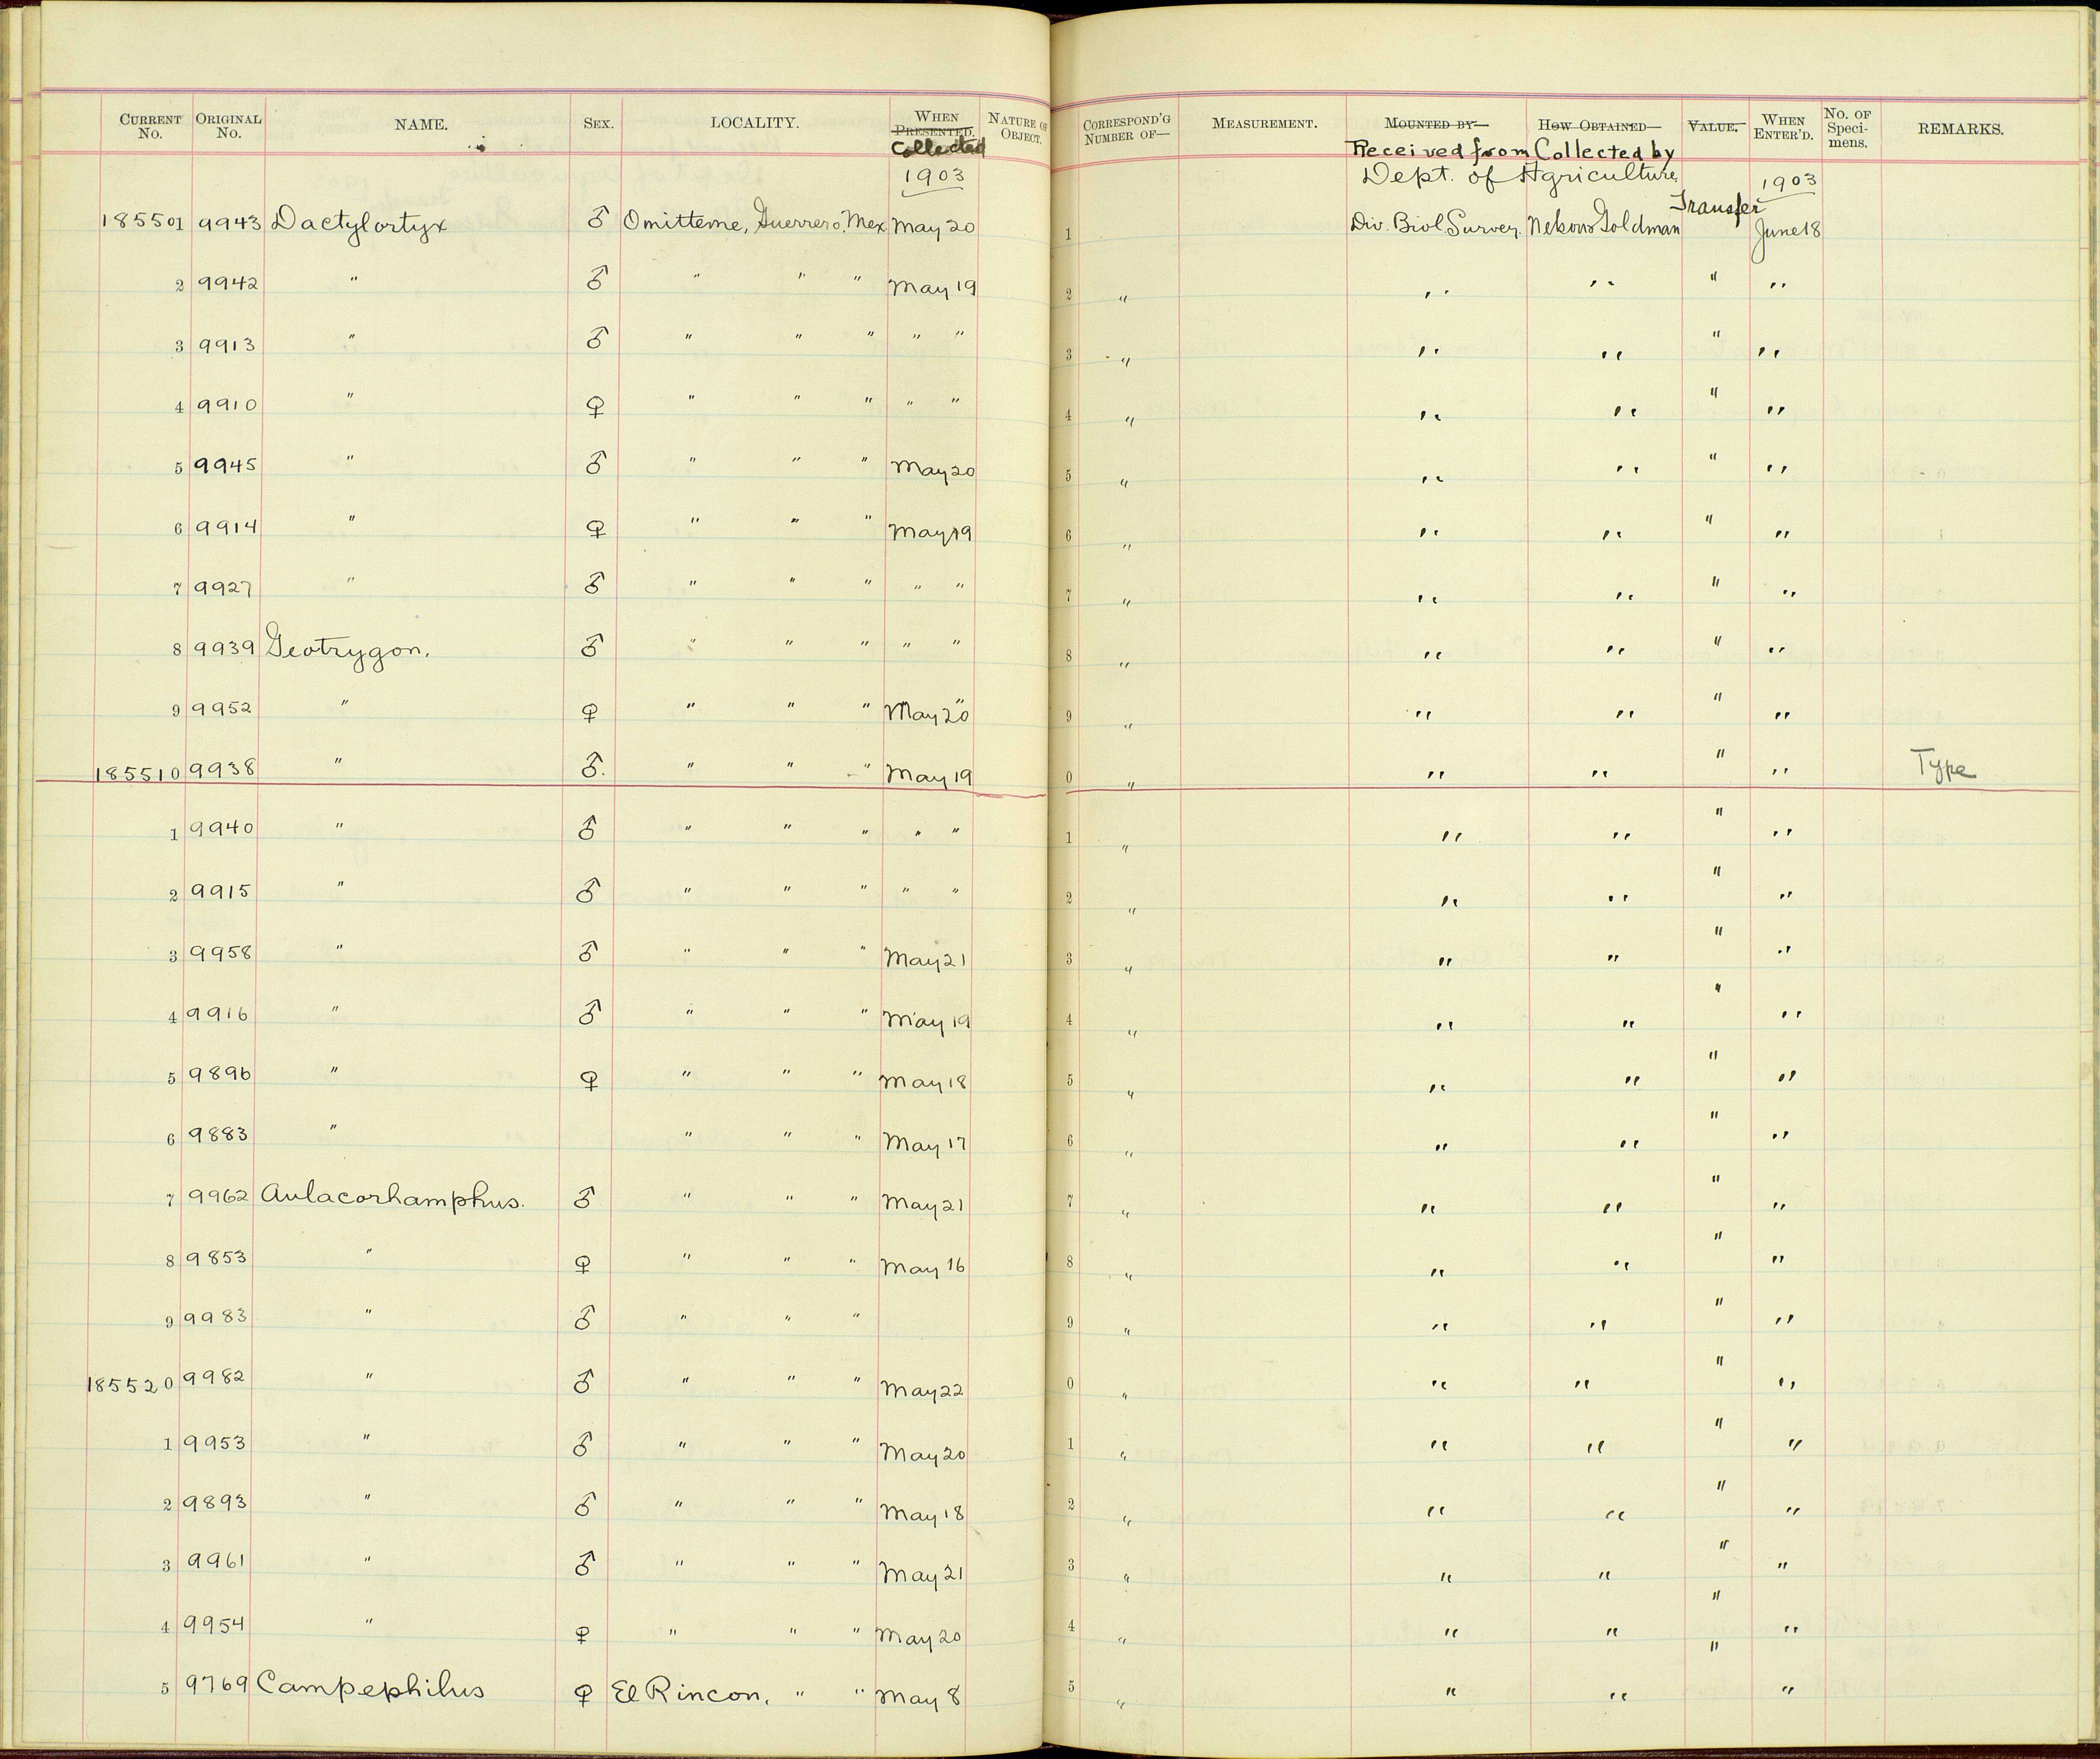 CURRENT No. ORIGINAL No. NAME. SEX. LOCALITY. WHEN PRESENTED. Collected NATURE OF OBJECT. CORRESPOND'G NUMBER OF— MEASUREMENT. MOUNTED BY— Received from HOW OBTAINED— Collected by VALUE. WHEN ENTER'D. No. OF Speci-mens. REMARKS.
1903 Dept. of Agriculture 1903
185501 9943 Dactylortyx ♂ Omitteme, Guerrero, Mex May 20 1 Div. Biol. Survey. Nelson Goldman Transfer June 18
2 9942 " ♂ " " " May 19 2 " " " " "
3 9913 " ♂ " " " " " 3 " " " " "
4 9910 " ♀ " " " " " 4 " " " " "
5 9945 " ♂ " " " May 20 5 " " " " "
6 9914 " ♀ " " " May 19 6 " " " " "
7 9927 " ♂ " " " " " 7 " " " " "
8 9939 Geotrygon. ♂ " " " " " 8 " " " " "
9 9952 " ♀ " " " May 20 9 " " " " "
185510 9938 " ♂. " " " May 19 0 " " " " " Type
1 9940 " ♂ " " " " " 1 " " " " "
2 9915 " ♂ " " " " " 2 " " " " "
3 9958 " ♂ " " " May 21 3 " " " " "
4 9916 " ♂ " " " May 19 4 " " " " "
5 9896 " ♀ " " " May 18 5 " " " " "
6 9883 " " " " May 17 6 " " " " "
7 9962 Aulacorhamphus. ♂ " " " May 21 7 " " " " "
8 9853 " ♀ " " " May 16 8 " " " " "
9 9983 " ♂ " " " 9 " " " " "
185520 9982 " ♂ " " " May 22 0 " " " " "
1 9953 " ♂ " " " May 20 1 " " " " "
2 9893 " ♂ " " " May 18 2 " " " " "
3 9961 " ♂ " " " May 21 3 " " " " "
4 9954 " ♀ " " " May 20 4 " " " " "
5 9769 Campephilus ♀ El Rincon, " " May 8 5 " " " " "